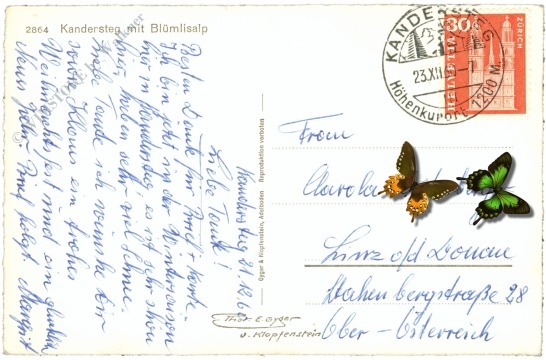 2864 Kandersteg mit Blümlisalp
Kandersteg 21.12.60
Liebe Tante!
Besten Dank für Brief + Karte.
Ich bin jetzt in der Wintersaison
hier in Kandersteg es ist sehr schön
hier, haben sehr viel Schnee.
Liebe Tante ich wünsche Dir
sowie Klaus ein frohes
Weihnachtsfest und ein glückl.
Neues Jahr. Brief folgt. Margrit
Gyger & Klopfenstein, Adelboden Reproduktion verboten
Phot. E. Gyger
u. Klopfenstein
KANDERSTEG
23.XII.60-7
Höhenkurort 1200 M.
30
HELVETIA
ZÜRICH
Frau
Linz o/d Donau
28
Ober-Österreich